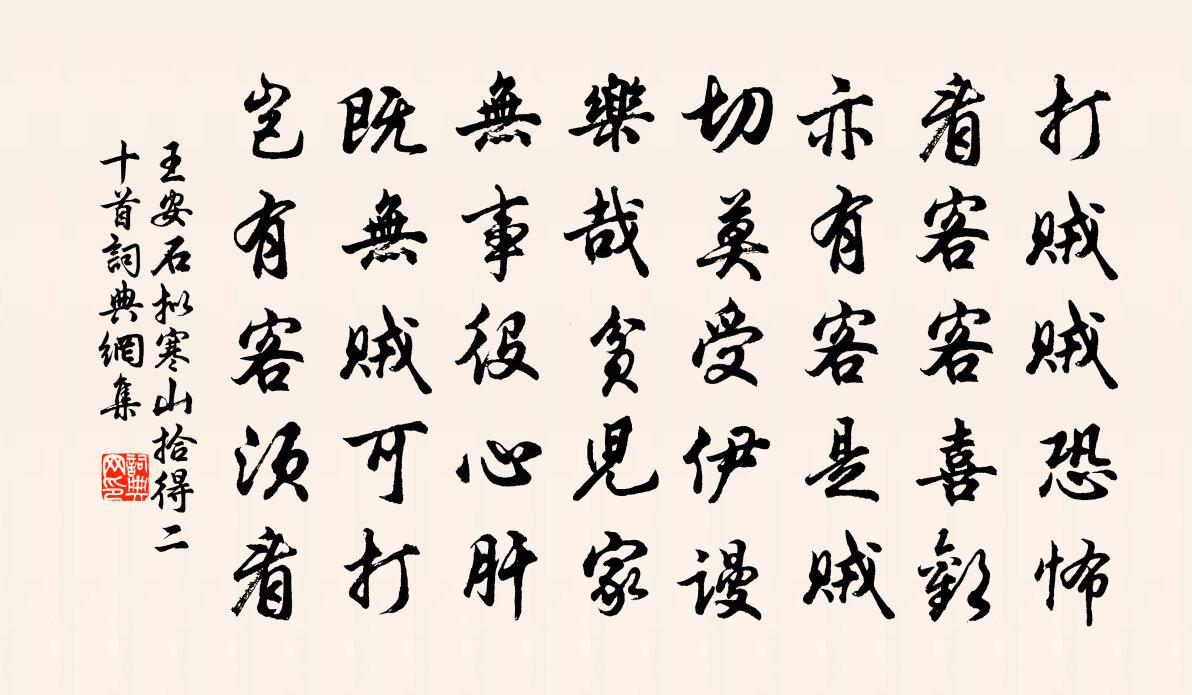 打賊賊恐怖
看客客喜歡
亦有客是賊
切莫受伊謾
樂哉貧兒家
無事役心肝
既無賊可打
豈有客須看
王安石拟寒山拾得二
十首詞典網集
詞典网印